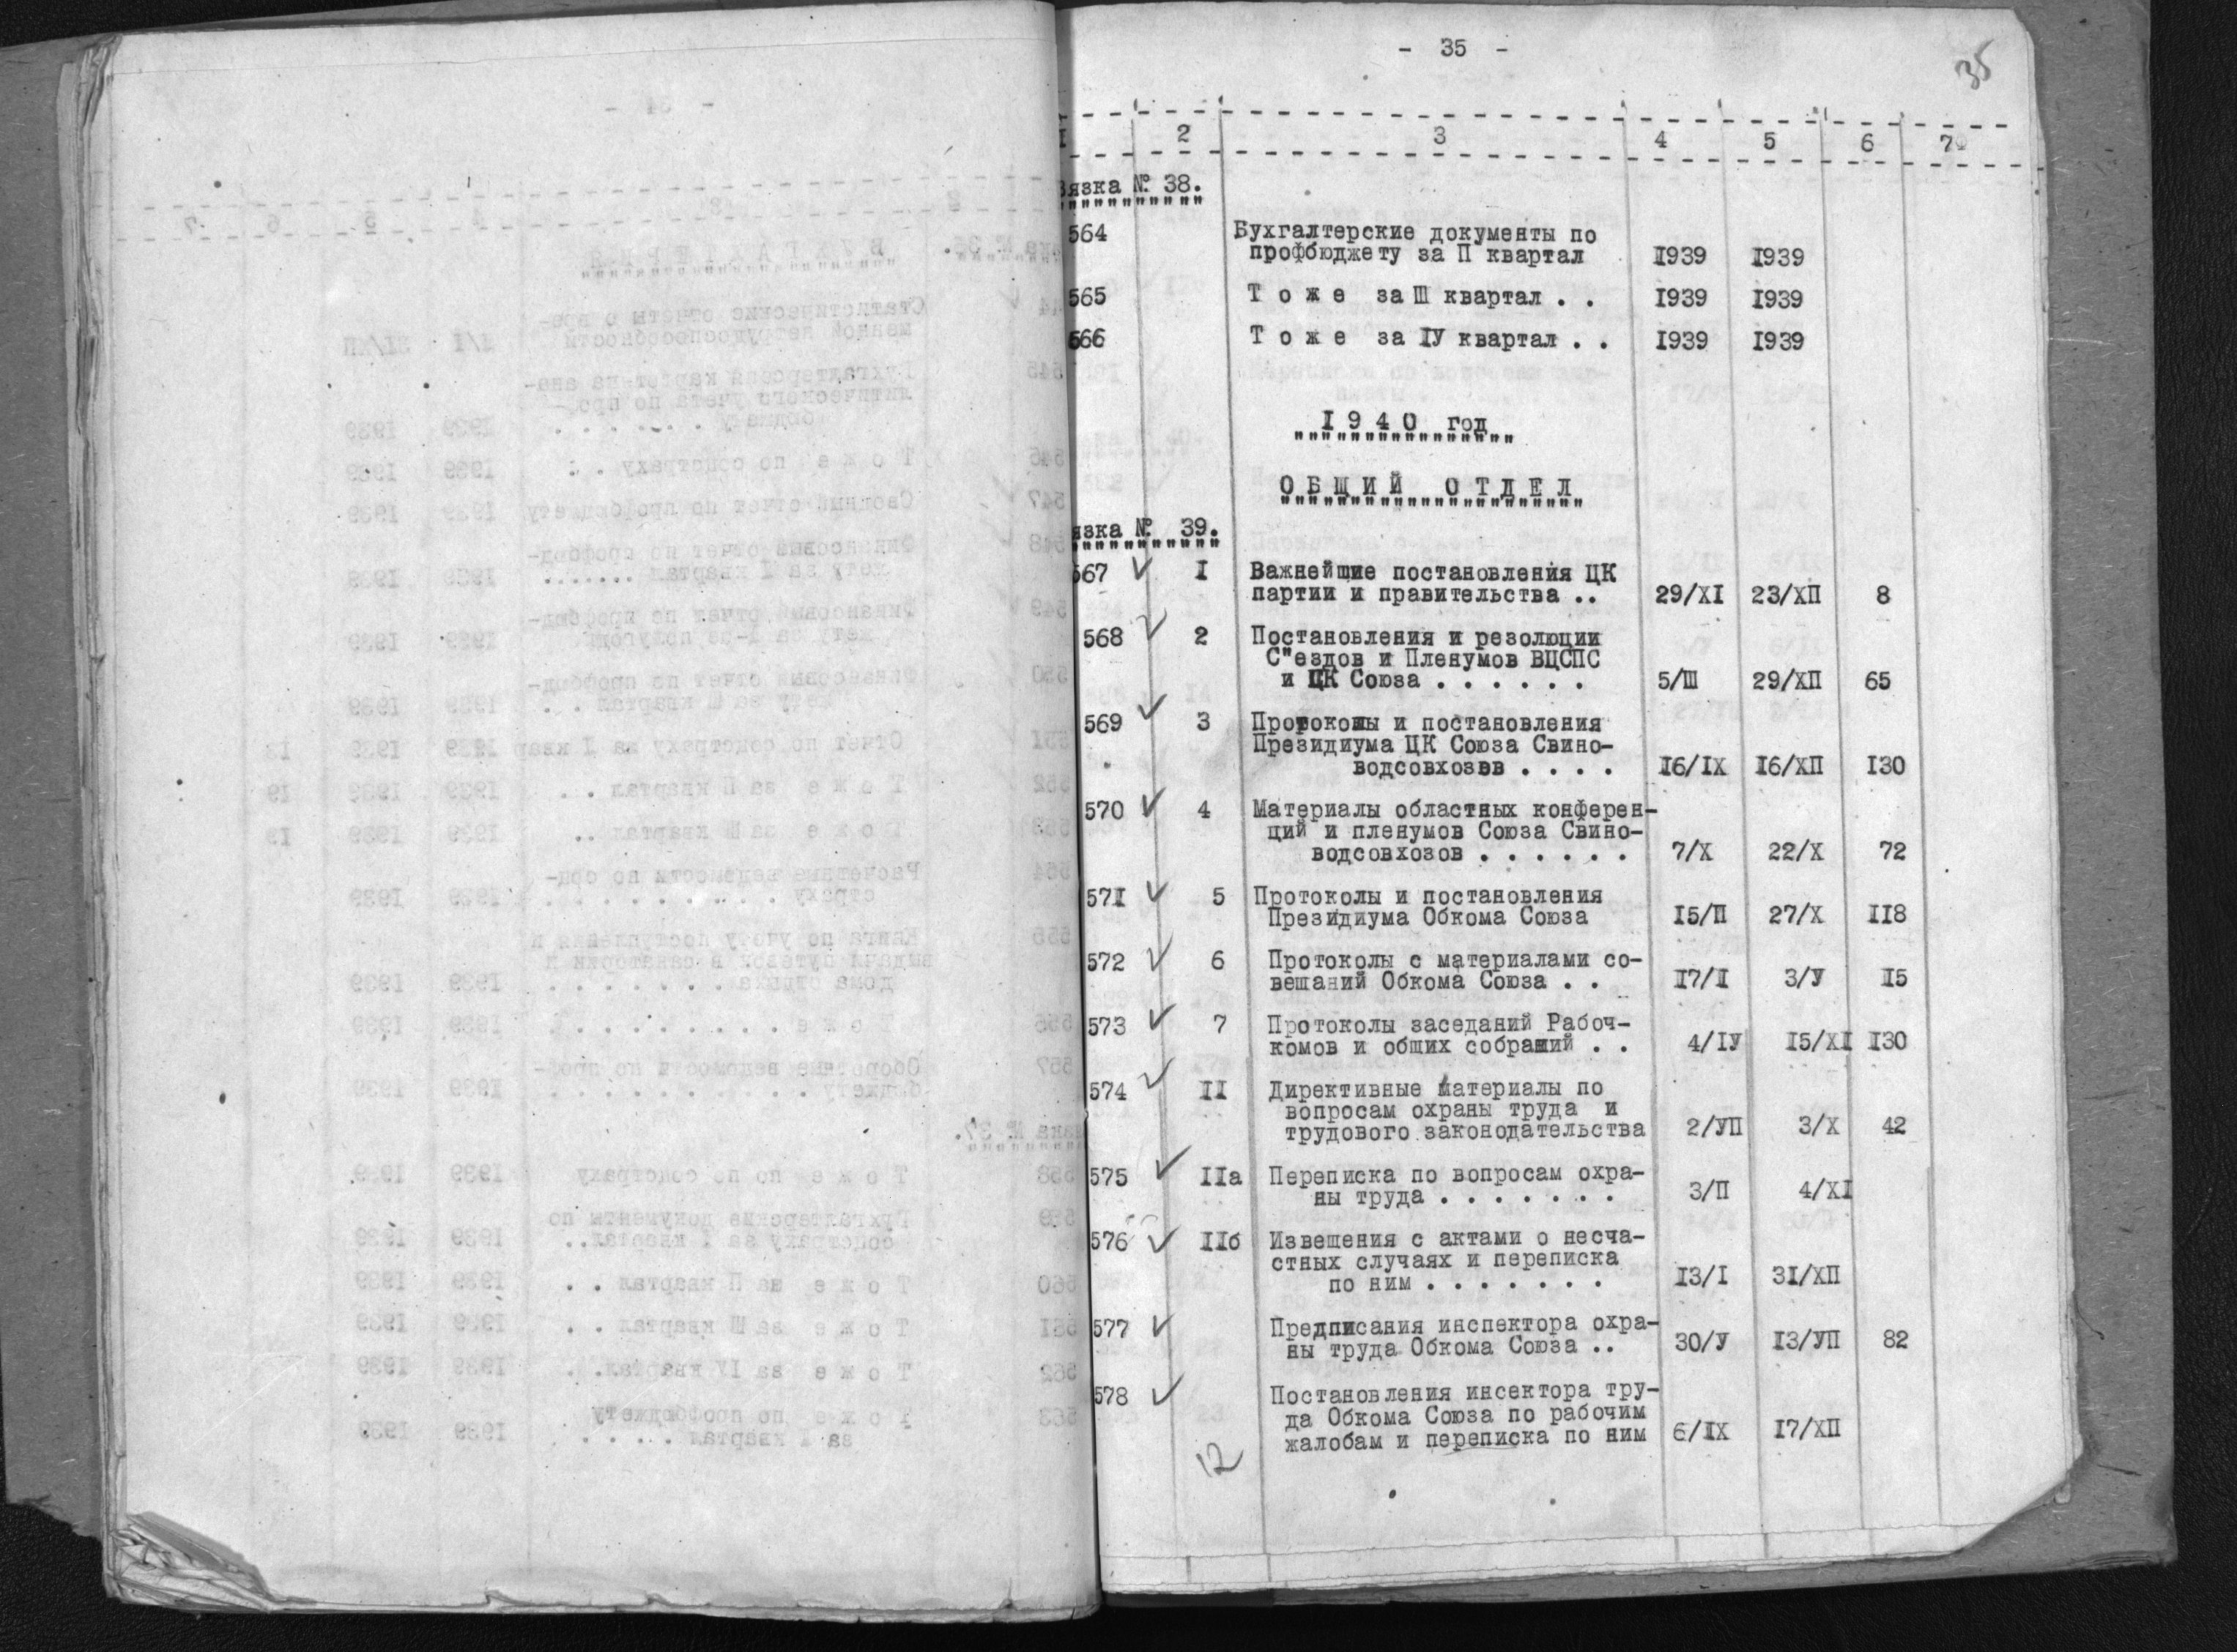 - 35 -
35
I 2 3 4 5 6 7
Вязка № 38.
564 Бухгалтерские документы по
профбюджету за П квартал I939 I939
565 Т о ж е за Ш квартал . . I939 I939
566 Т о ж е за IУ квартал . . I939 I939
I 9 4 0 год
О Б Щ И Й О Т Д Е Л
язка № 39.
567 ✓ I Важнейшие постановления ЦК
партии и правительства .. 29/XI 23/ХП 8
568 ✓ 2 Постановления и резолюции
С"ездов и Пленумов ВЦСПС
и ЦК Союза . . . . . . 5/Ш 29/ХП 65
569 ✓ 3 Протоколы и постановления
Президиума ЦК Союза Свино-
водсовхозов . . . . I6/IX I6/ХП I30
570 ✓ 4 Материалы областных конферен-
ций и пленумов Союза Свино-
водсовхозов . . . . . . 7/X 22/X 72
57I ✓ 5 Протоколы и постановления
Президиума Обкома Союза I5/П 27/X II8
572 ✓ 6 Протоколы с материалами со-
вещаний Обкома Союза . . I7/I 3/У I5
573 ✓ 7 Протоколы заседаний Рабоч-
комов и общих собраний . . 4/IУ I5/XI I30
574 ✓ II Директивные материалы по
вопросам охраны труда и
трудового законодательства 2/УП 3/X 42
575 ✓ IIа Переписка по вопросам охра-
ны труда . . . . . . . 3/П 4/XI
576 ✓ IIб Извещения с актами о несча-
стных случаях и переписка
по ним . . . . . . . I3/I 3I/ХП
577 ✓ Предписания инспектора охра-
ны труда Обкома Союза .. 30/У I3/УП 82
578 ✓ Постановления инсектора тру-
да Обкома Союза по рабочим
жалобам и переписка по ним 6/IX I7/ХП
12